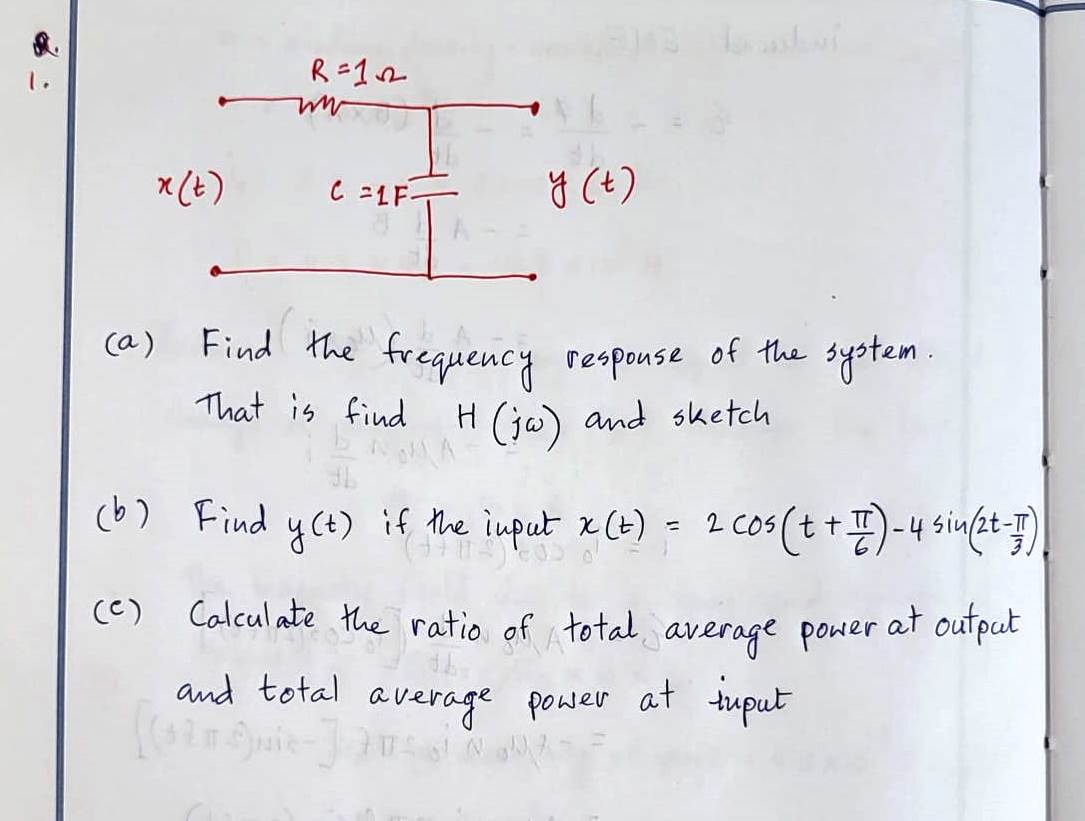 Q.
1.
R=1Ω
x(t)
C=1F
y(t)
(a) Find the frequency response of the system.
That is find H(jω) and sketch
(b) Find y(t) if the input x(t) = 2 cos(t + π/6) - 4 sin(2t - π/3)
(c) Calculate the ratio of total average power at output
and total average power at input